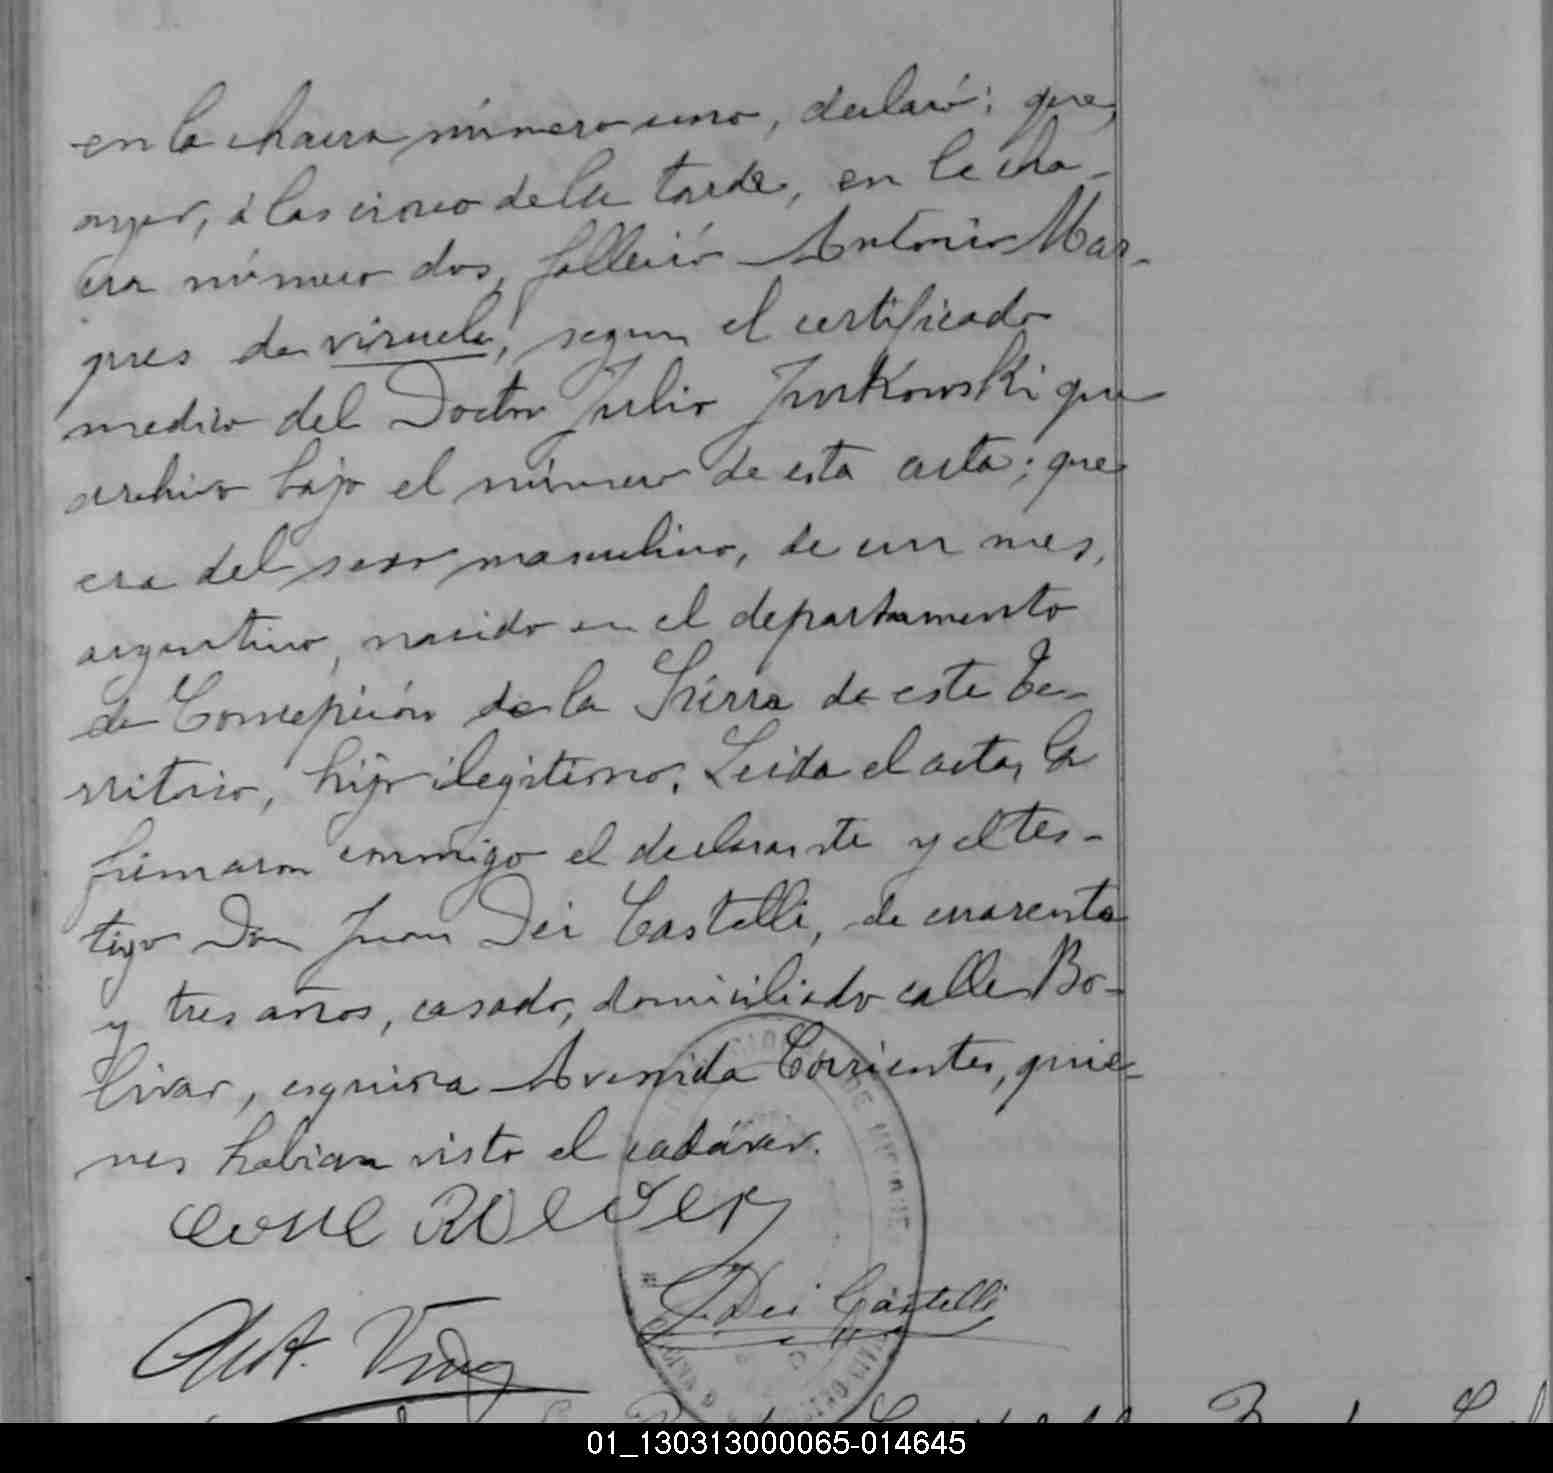 en la chacra número uno, declaró: que,
ayer, á las cinco de la tarde, en la cha-
cra número dos, falleció Antonio Mar-
ques de viruela, segun el certificado
medico del Doctor Julio Jurkowski que
archivo bajo el número de esta acta; que
era del sexo masculino, de un mes,
argentino, nacido en el departamento
de Concepción de la Sierra de este te-
rritorio, hijo ilegitimo. Leida el acta, la
firmaron conmigo el declarante y el tes-
tigo Don Juan Dei Castelli, de cuarenta
y tres años, casado, domiciliado calle Bo-
livar, esquina Avenida Corrientes, quie-
nes habian visto el cadáver.
J. Dei Castelli
01_130313000065-014645